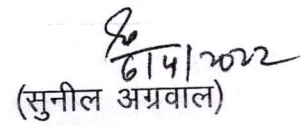 6/4/2022
(सुनील अग्रवाल)